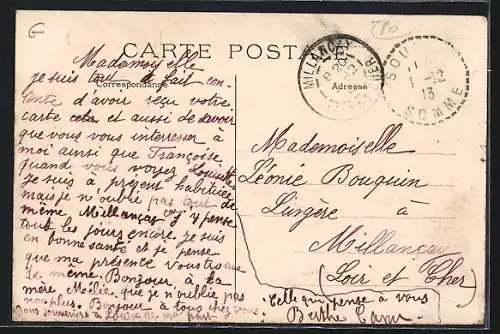 CARTE POSTALE
Correspondance
Adresse
MILLANÇAY
SOMME
13
Mademoiselle
je suis tout à fait con-
tente d'avoir reçu votre
carte et aussi de savoir
que vous vous interresser à
moi ainsi que Françoise
quand vous voyez
je suis à présent habituée
mais je n'oublie pas quand
même, Millançay j'y pense
tout les jours encore. je suis
en bonne santé et je pense
que ma présence vous trouve
de même. Bonjour à la
mère, que je n'oublie pas
non plus. Bonjour à tous chez vous
nous souvenirs à Louise de ma part
Mademoiselle
Léonie Bouquin
Lingère à
Millançay
(Loir et Cher)
Celle qui pense à vous
Berthe